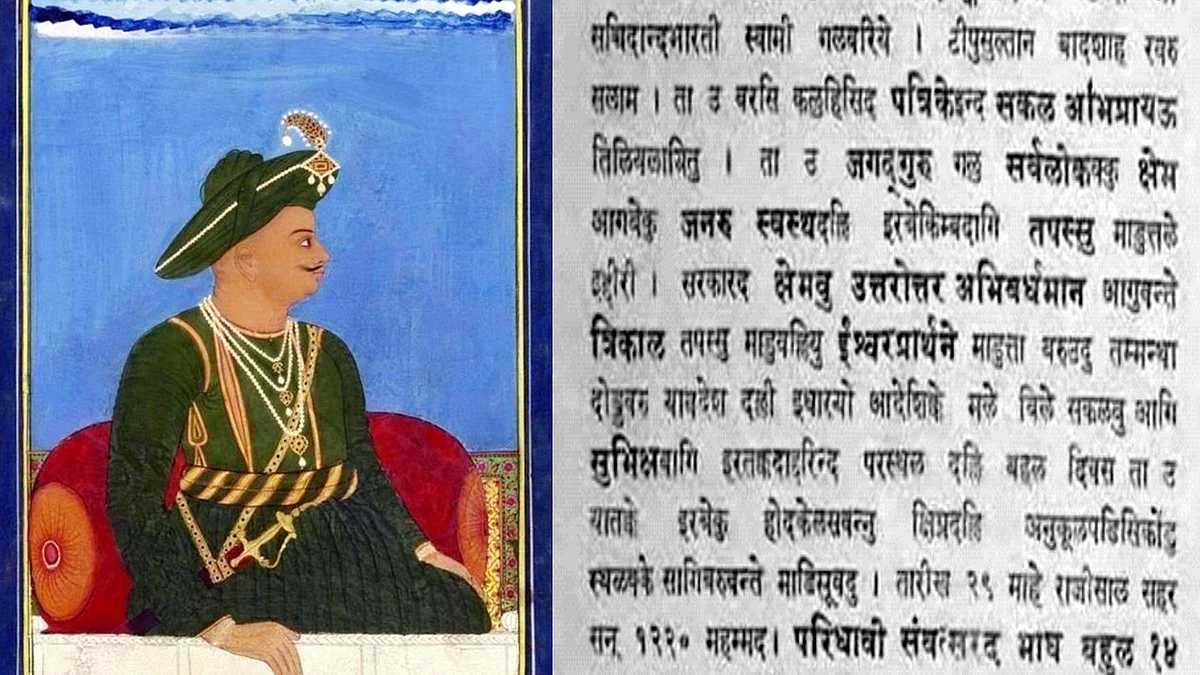 सचिदान्दभारती स्वामी गलवरिये । टीपुसुल्तान बादशाह रवरु
सलाम । ता उ वरसि कलुहिसिद पत्रिकेइन्द सकल अभिप्रायऊ
तिलियलायितु । ता उ जगद्गुरु गलु सर्वलोकक्कु क्षेम
आगबेकु जनरु स्वस्थदल्लि इरबेकिम्बदागि तपस्सु माडुत्तले
इद्दीरी । सरकारद क्षेमवु उत्तरोत्तर अभिबर्धमान आगुवन्ते
त्रिकाल तपस्सु माडुवल्लियु ईश्वरप्रार्थने माडुत्ता बरुउदु तम्मन्था
दोड्डवरु यावदेश दल्ली इधारयो आदेशिक्के मले विले सकलवु आगि
सुभिक्षवागि इरतक्कदाद्दरिन्द परस्थल दल्लि बहल दिवस ता उ
यातक्के इरबेकु होदकेलसवन्नु क्षिप्रदल्लि अनुकूलपडिसिकोंडु
स्थळक्के सागिबरुवन्ते माडिसूवदु । तारीख २९ माहे राजीसाल सहर
सन् १२२० महम्मद। परिधावी संवत्सरद माघ बहुल १४